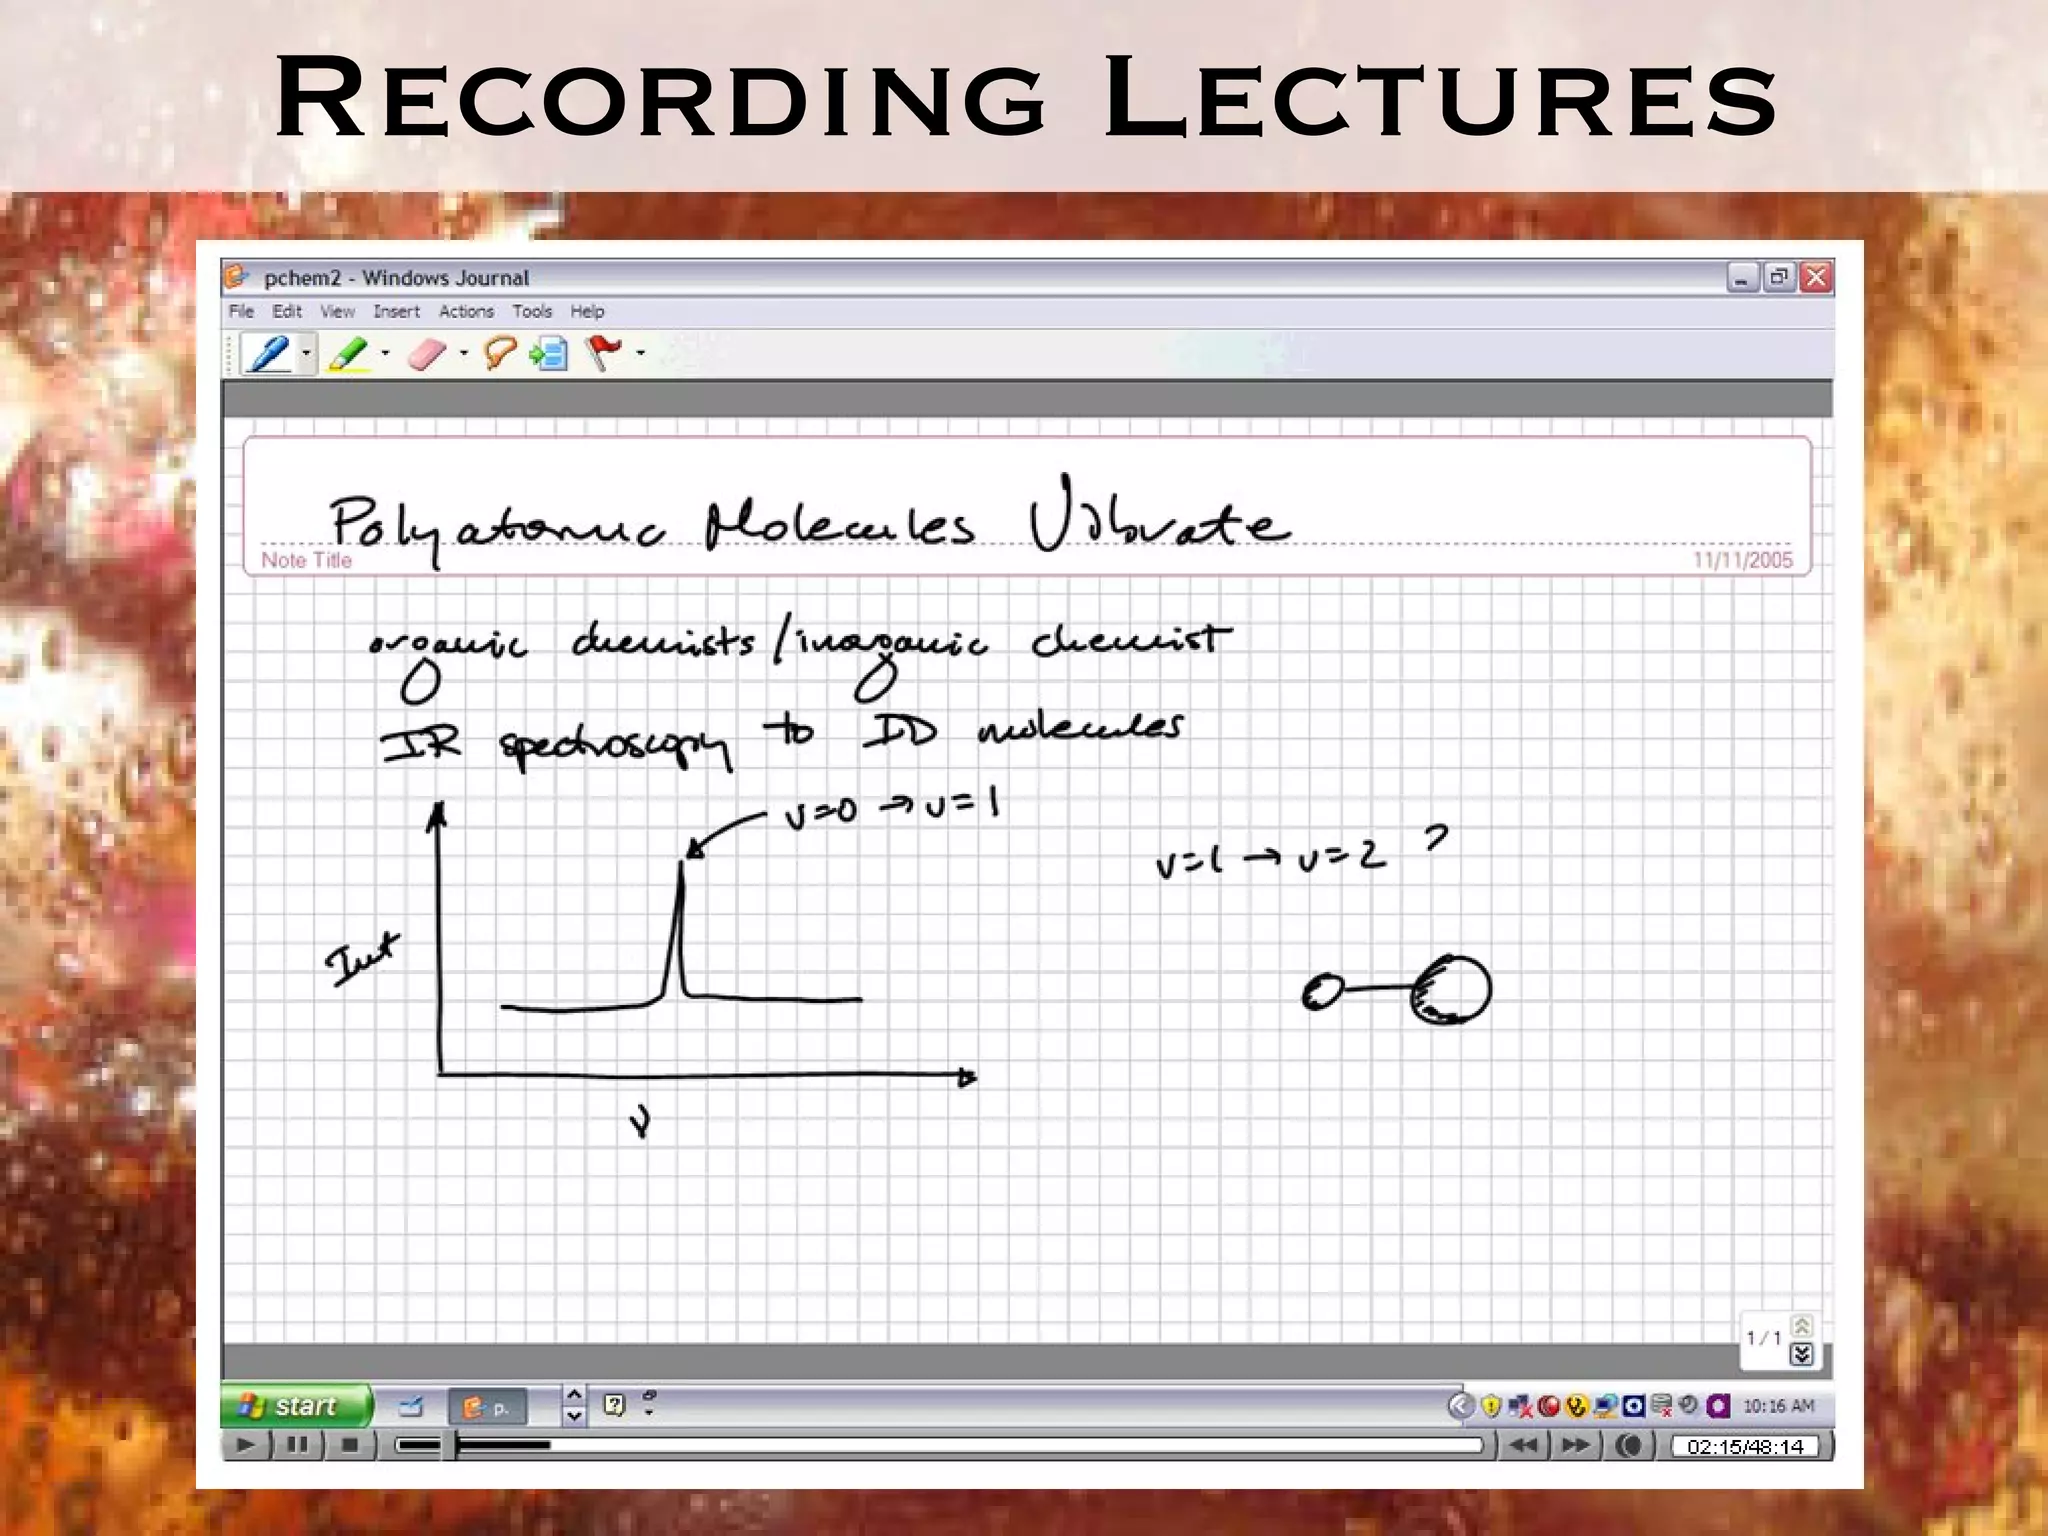 RECORDING LECTURES
pchem2 - Windows Journal
File Edit View Insert Actions Tools Help
Polyatomic Molecules Vibrate
Note Title 11/11/2005
organic chemists/inorganic chemist
IR spectroscopy to ID molecules
v=0 → v=1
v=1 → v=2 ?
Int
ν
1/1
start p. 10:16 AM
02:15/48:14